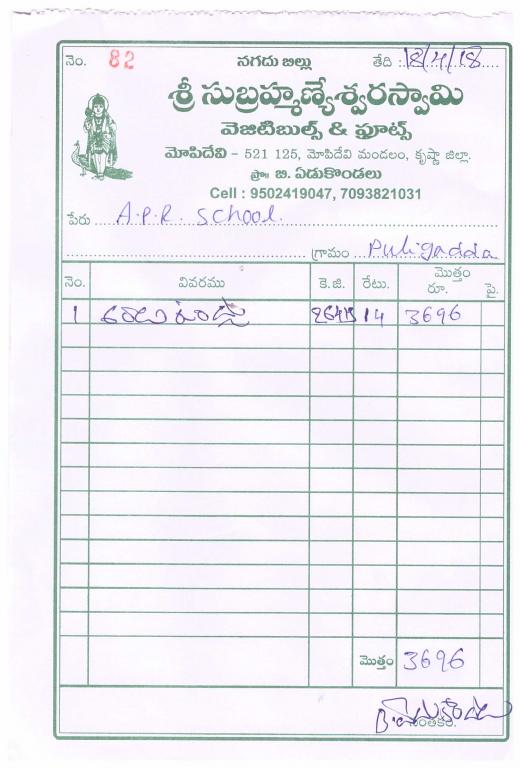 నెం. 82 నగదు బిల్లు తేది : 18/4/18
శ్రీ సుబ్రహ్మణ్యేశ్వరస్వామి
వెజిటిబుల్స్ & ఫ్రూట్స్
మోపిదేవి - 521 125, మోపిదేవి మండలం, కృష్ణా జిల్లా.
ప్రొ॥ బి. ఏడుకొండలు
Cell : 9502419047, 7093821031
పేరు A.P.R. School.
గ్రామం Puligadda
నెం. వివరము కె.జి. రేటు. మొత్తం రూ. పై.
1 14 3696
మొత్తం 3696
సంతకం.